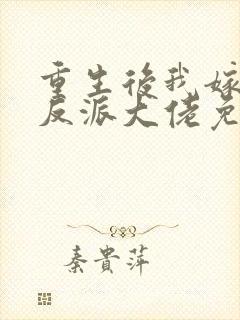 重生後我嫁
反派大佬免
秦貴萍